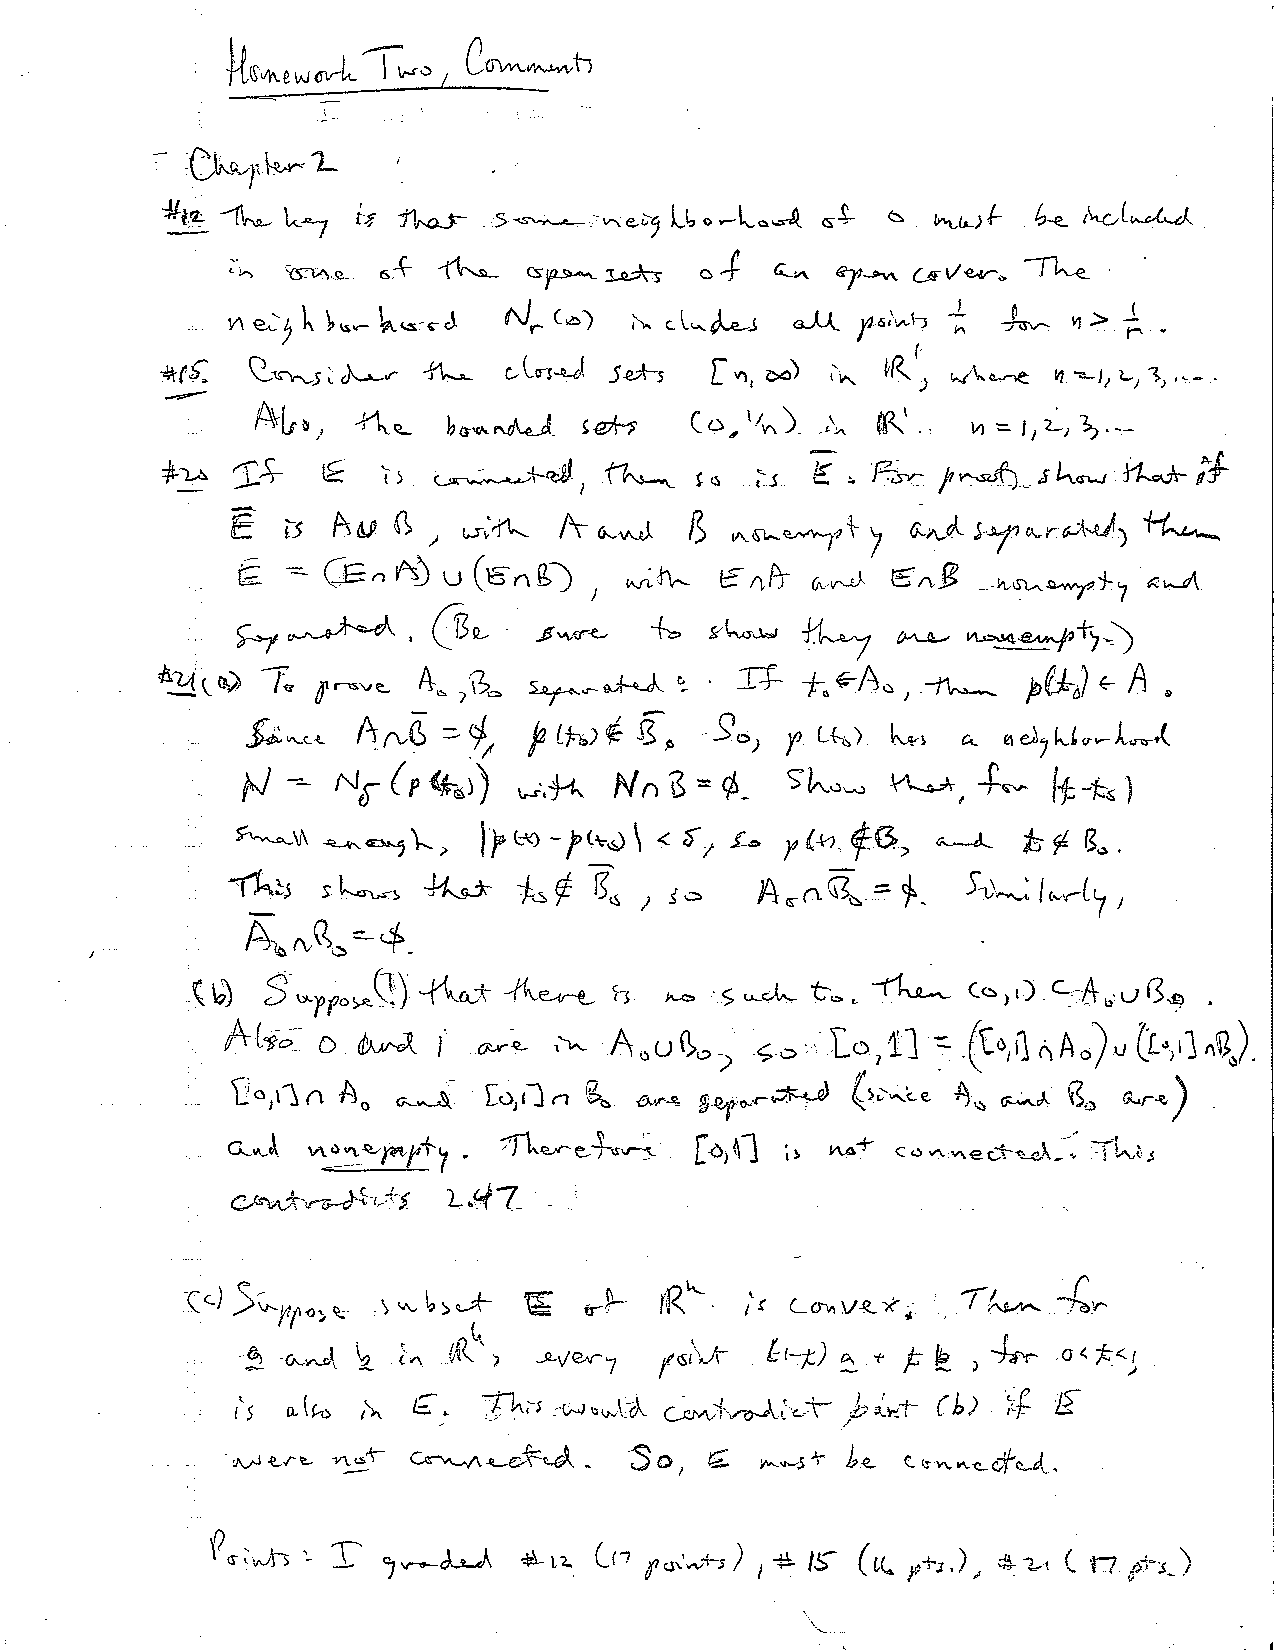 Homework Two, Comments
Chapter 2
#12 The key is that some neighborhood of 0 must be included
in one of the open sets of an open cover. The
neighborhood Nᵣ(0) includes all points 1/n for n > 1/r.
#15. Consider the closed sets [n, ∞) in ℝ¹, where n=1,2,3,....
Also, the bounded sets (0, 1/n) in ℝ¹. n = 1,2,3...
#20 If E is connected, then so is E̅. For proof, show that if
E̅ is A∪B, with A and B nonempty and separated, then
E = (E∩A)∪(E∩B), with E∩A and E∩B nonempty and
separated. (Be sure to show they are nonempty.)
#21(a) To prove A₀, B₀ separated: If t₀∈A₀, then p(t₀)∈A.
Since A∩B̅ = ∅, p(t₀)∉B̅. So, p(t₀) has a neighborhood
N = N_δ(p(t₀)) with N∩B=∅. Show that, for |t-t₀|
small enough, |p(t)-p(t₀)| < δ, so p(t)∉B, and t∉B₀.
This shows that t₀∉B̅₀, so A₀∩B̅₀=∅. Similarly,
A̅₀∩B₀=∅.
(b) Suppose(!) that there is no such t₀. Then (0,1)⊂A₀∪B₀.
Also 0 and 1 are in A₀∪B₀, so [0,1] = ([0,1]∩A₀)∪([0,1]∩B₀).
[0,1]∩A₀ and [0,1]∩B₀ are separated (since A₀ and B₀ are)
and nonempty. Therefore [0,1] is not connected. This
contradicts 2.47
(c) Suppose subset E of ℝᵏ is convex. Then for
a and b in ℝᵏ, every point (1-t)a + tb, for 0<t<1
is also in E. This would contradict part (b) if E
were not connected. So, E must be connected.
Points: I graded #12 (17 points), #15 (16 pts.), #21 (17 pts.)